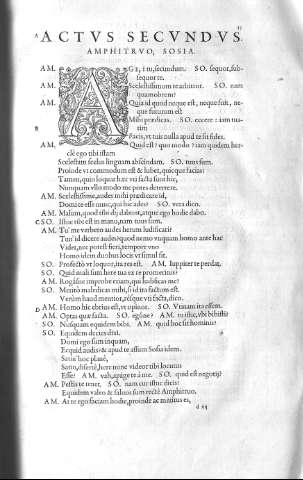 ACTVS SECVNDVS.
AMPHITRVO, SOSIA.
AM. AGe, i tu, secundum. SO. sequor, sub-
sequor te.
AM. Scelestissimum te arbitror. SO. nam
quamobrem?
AM. Quia id quod neque est, neque fuit, ne-
que futurum est
Mihi prædicas. SO. eccere: iam tua-
tim
Facis, vt tuis nulla apud te sit fides.
AM. Quid est? quo modo? iam quidem her-
cle ego tibi istam
Scelestam scelus linguam abscindam. SO. tuus sum.
Proinde vt commodum est & lubet, quicque facias:
Tamen, quin loquar hæc vti facta sunt hic,
Nunquam vllo modo me potes deterrere.
AM. Scelestissime, audes mihi prædicare id,
Domi te esse nunc, qui hic ades? SO. vera dico.
AM. Malum, quod tibi dij dabunt, atque ego hodie dabo.
SO. Istuc tibi est in manu, nam tuus sum.
AM. Tu' me verbero audes herum ludificari?
Tun' id dicere audes? quod nemo vnquam homo ante hac
Vidit, nec potest fieri, tempore vno
Homo idem duobus locis vt simul sit.
SO. Profecto vt loquor, ita res est. AM. Iuppiter te perdat,
SO. Quid mali sum here tua ex re promeritus?
AM. Rogásne improbe etiam, qui ludificas me?
SO. Merito maledicas mihi, si id ita factum est.
Verùm haud mentior, résque vti facta, dico.
AM. Homo hic ebrius est, vt opinor. SO. Vtinam ita essem.
AM. Optas quæ facta. SO. egóne? AM. tu istic, vbi bibisti?
SO. Nusquam equidem bibi. AM. quid hoc sit hominis?
SO. Equidem decies dixi.
Domi ego sum inquam,
Ecquid audis? & apud te assum Sosia idem.
Satin' hoc planè,
Satin' disertè, here nunc videor tibi locutus
Esse? AM. vah, apage te à me. SO. quid est negotij?
AM. Pestis te tenet. SO. nam cur istuc dicis?
Equidem valeo & saluus sum rectè Amphitruo.
AM. At te ego faciam hodie, proinde ac meritus es,